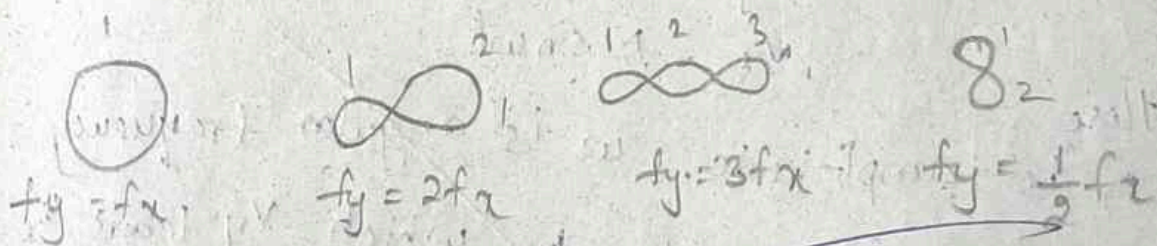 1 1 2 1 2 3 1 2
fy = fx fy = 2fx fy = 3fx fy = 1/2 fx